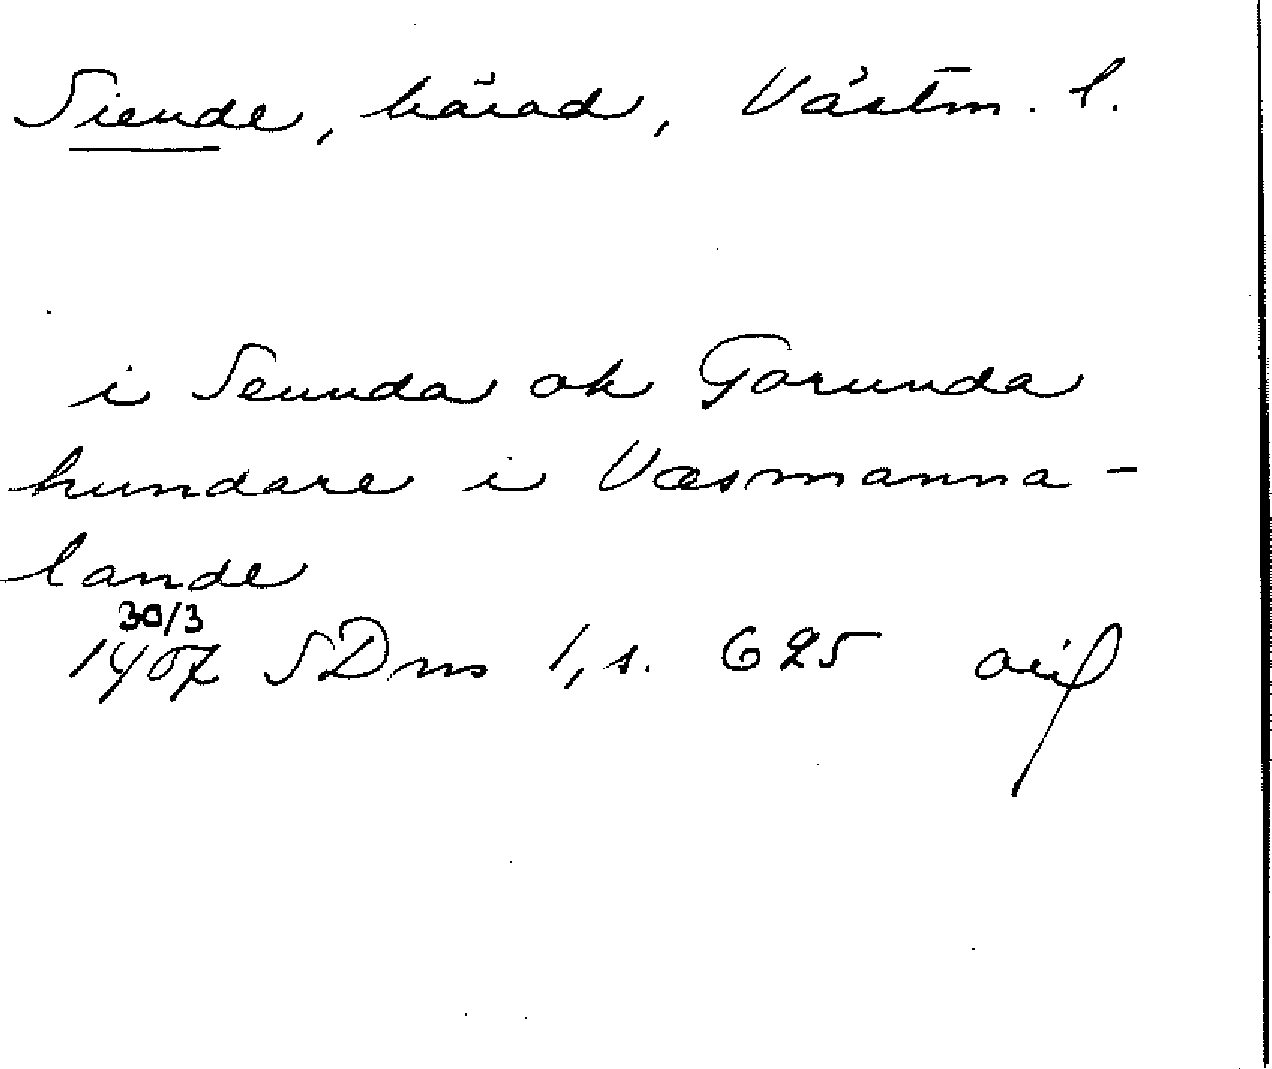 Siende, härad, Västm. l.
i Seunda ok Gorunda
hundare i Væsmanna-
lande
30/3
1407 SDns 1, s. 625